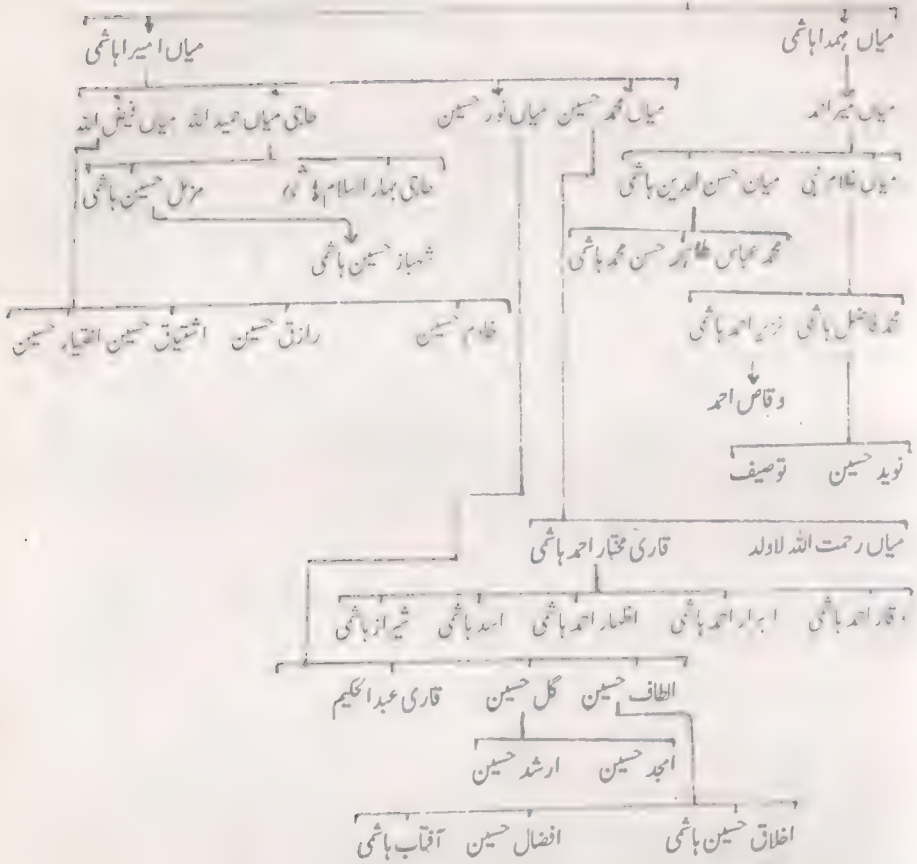 میاں مہمدا ہاشمی میاں امیرا ہاشمی
میاں میر احمد میاں محمد حسین میاں نور حسین حاجی میاں حمید اللہ میاں فیض اللہ
میاں غلام نبی میاں حسن الدین ہاشمی حاجی بہار اسلام مزمل حسین ہاشمی
محمد عباس طاہر حسن محمد ہاشمی شہباز حسین ہاشمی
محمد فاضل ہاشمی نزیر احمد ہاشمی خادم حسین رازق حسین اشتیاق حسین اختیار حسین
وقاص احمد
نوید حسین توصیف
میاں رحمت اللہ لاولد قاری مختار احمد ہاشمی
وقار احمد ہاشمی ابرار احمد ہاشمی اظہار احمد ہاشمی اسد ہاشمی شیراز ہاشمی
الطاف حسین گل حسین قاری عبدالحکیم
امجد حسین ارشد حسین
اخلاق حسین ہاشمی افضال حسین آفتاب ہاشمی